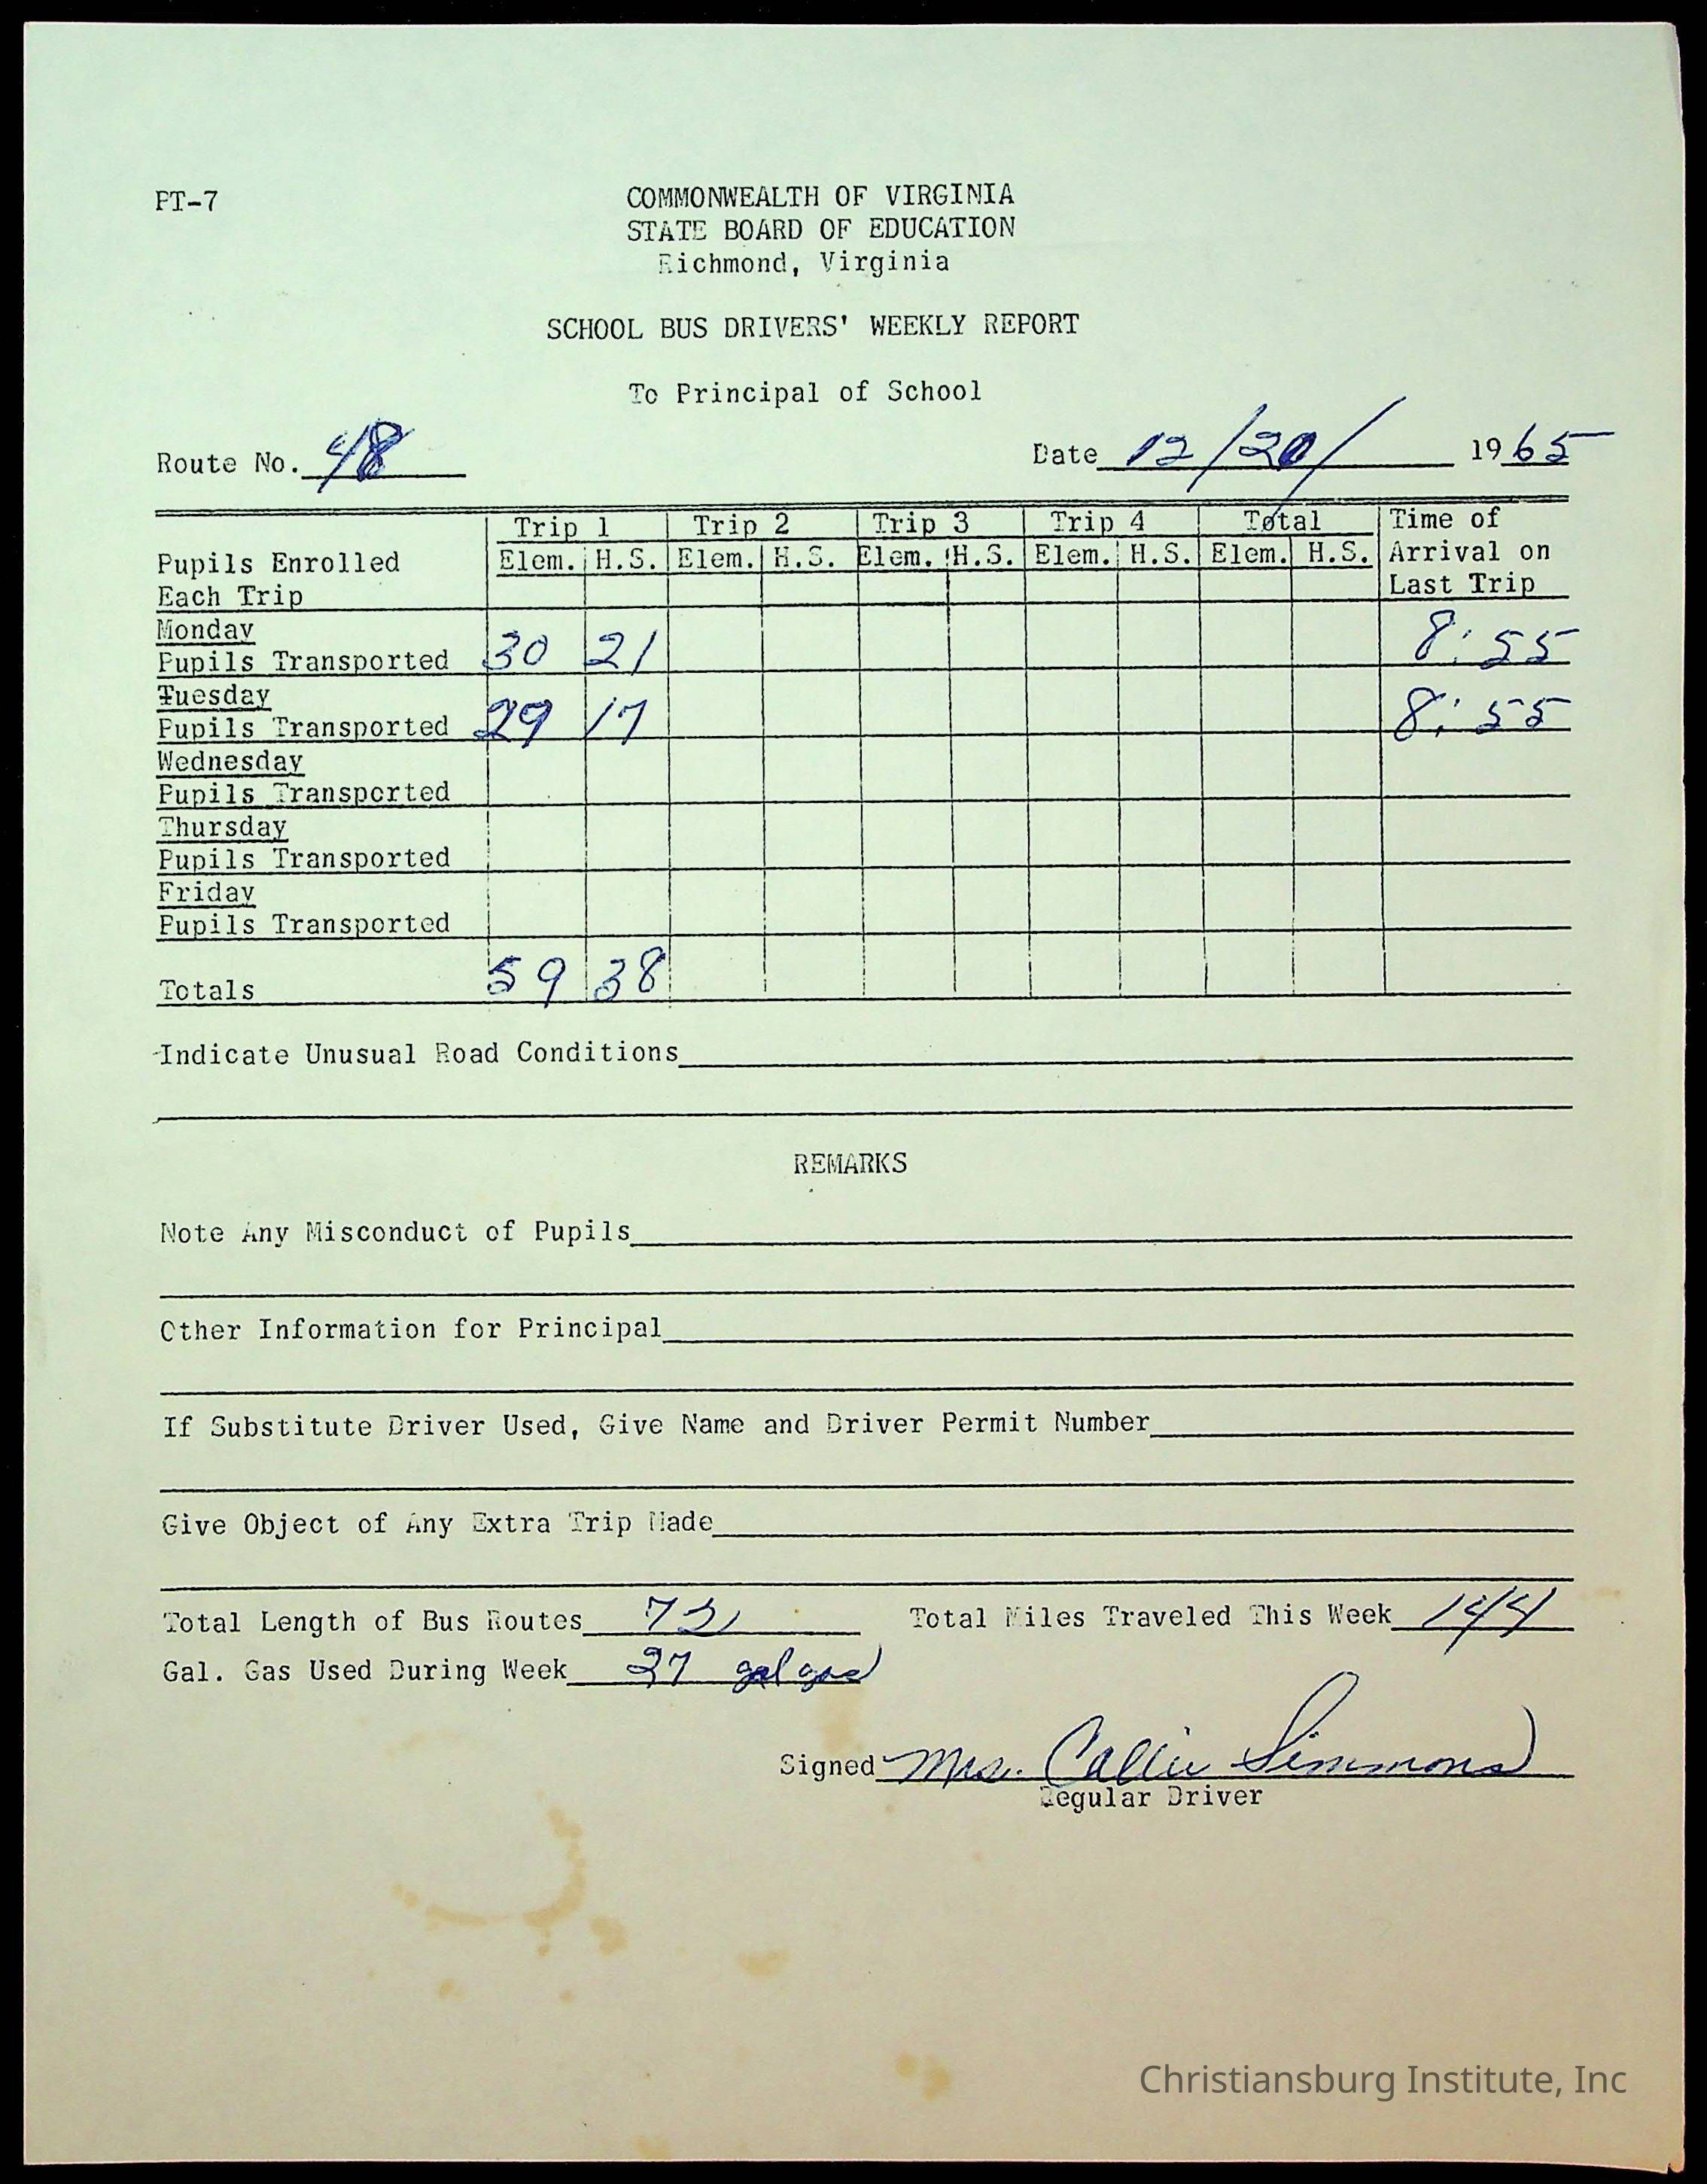 PT-7
COMMONWEALTH OF VIRGINIA
STATE BOARD OF EDUCATION
Richmond, Virginia
SCHOOL BUS DRIVERS' WEEKLY REPORT
To Principal of School
Route No. 48 Date 12/20/ 1965
Trip 1 Trip 2 Trip 3 Trip 4 Total Time of
Pupils Enrolled Elem. H.S. Elem. H.S. Elem. H.S. Elem. H.S. Elem. H.S. Arrival on
Each Trip Last Trip
Monday
Pupils Transported 30 21 8:55
Tuesday
Pupils Transported 29 17 8:55
Wednesday
Pupils Transported
Thursday
Pupils Transported
Friday
Pupils Transported
Totals 59 38
Indicate Unusual Road Conditions
REMARKS
Note Any Misconduct of Pupils
Other Information for Principal
If Substitute Driver Used, Give Name and Driver Permit Number
Give Object of Any Extra Trip Made
Total Length of Bus Routes 72 Total Miles Traveled This Week 144
Gal. Gas Used During Week 27 gal gas
Signed Mrs. Callie Simmons
Regular Driver
Christiansburg Institute, Inc